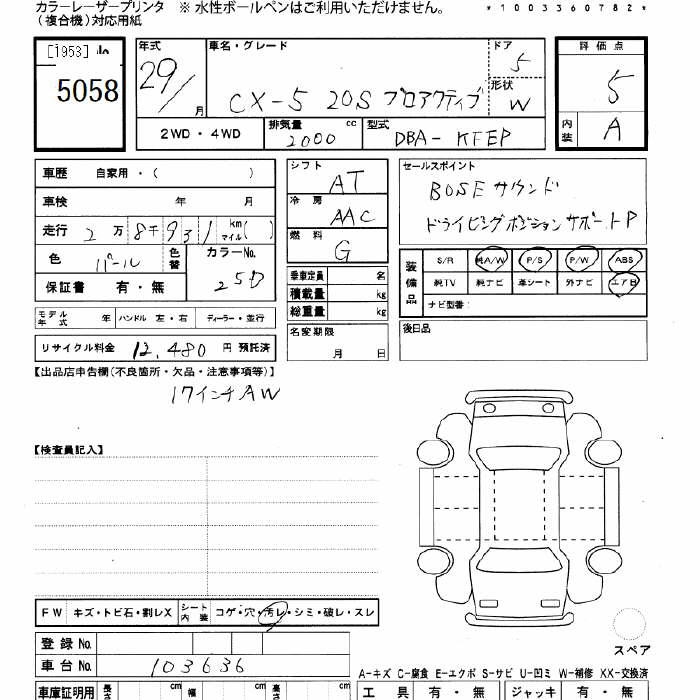 カラーレーザープリンタ ※ 水性ボールペンはご利用いただけません。 *1003360782*
(複合機)対応用紙
[1953]
5058
年式 車名・グレード ドア 評価点
29/ 月 CX-5 20S プロアクティブ 5 形状 W 5
2WD・4WD 排気量 2000 cc 型式 DBA-KFEP 内装 A
車歴 自家用・( ) シフト AT セールスポイント
車検 年 月 冷房 AAC BOSEサウンド
走行 2万8千931 km マイル( ) 燃料 G ドライビングポジションサポートP
色 パール 色替 カラーNo. 25D
保証書 有・無
乗車定員 名
積載量 kg
総重量 kg
装備品 S/R 純A/W P/S P/W ABS
純TV 純ナビ 革シート 外ナビ エアB
ナビ型番:
モデル年式 年 ハンドル 左・右 ディーラー・並行
名変期限 月 日
後日品
リサイクル料金 12,480 円 預託済
【出品店申告欄(不良箇所・欠品・注意事項等)】
17インチAW
【検査員記入】
FW キズ・トビ石・割レX シート内装 コゲ・穴・汚レ・シミ・破レ・スレ
スペア
登録No.
車台No. 103636
A-キズ C-腐食 E-エクボ S-サビ U-凹ミ W-補修 XX-交換済
車庫証明用 長さ cm 幅 cm 高さ cm 工具 有・無 ジャッキ 有・無